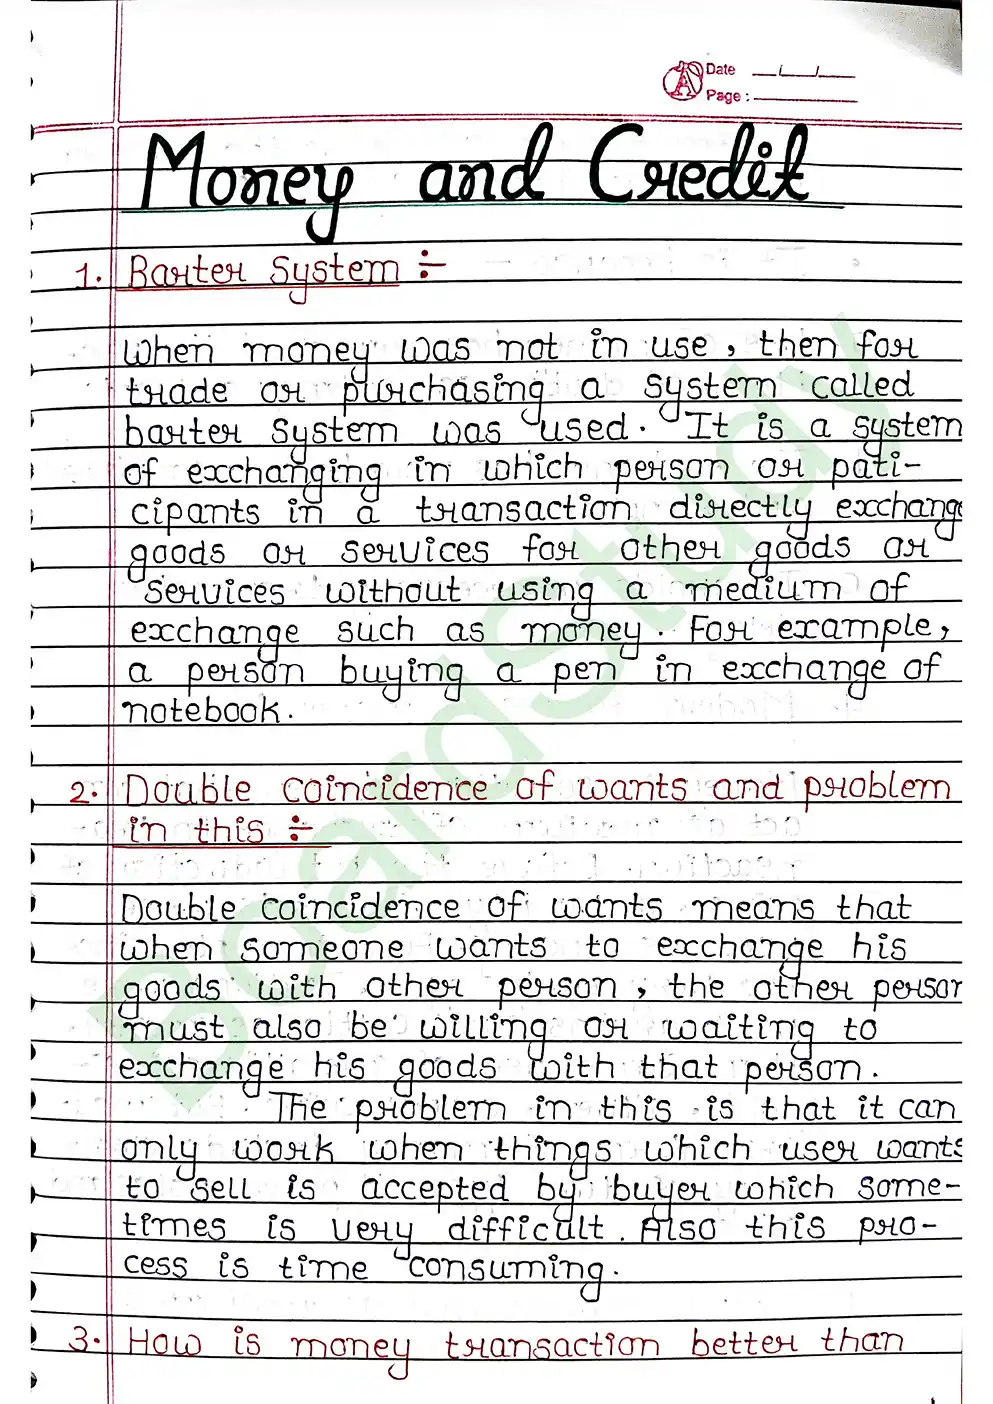 Date __/__/__
Page : ________
Money and Credit
1. Barter System ÷
When money was not in use, then for
trade or purchasing a system called
barter system was used. It is a system
of exchanging in which person or pati-
cipants in a transaction directly exchange
goods or services for other goods or
services without using a medium of
exchange such as money. For example,
a person buying a pen in exchange of
notebook.
2. Double coincidence of wants and problem
in this ÷
Double coincidence of wants means that
when someone wants to exchange his
goods with other person, the other person
must also be willing or waiting to
exchange his goods with that person.
The problem in this is that it can
only work when things which user wants
to sell is accepted by buyer which some-
times is very difficult. Also this pro-
cess is time consuming.
3. How is money transaction better than
BoardStudy